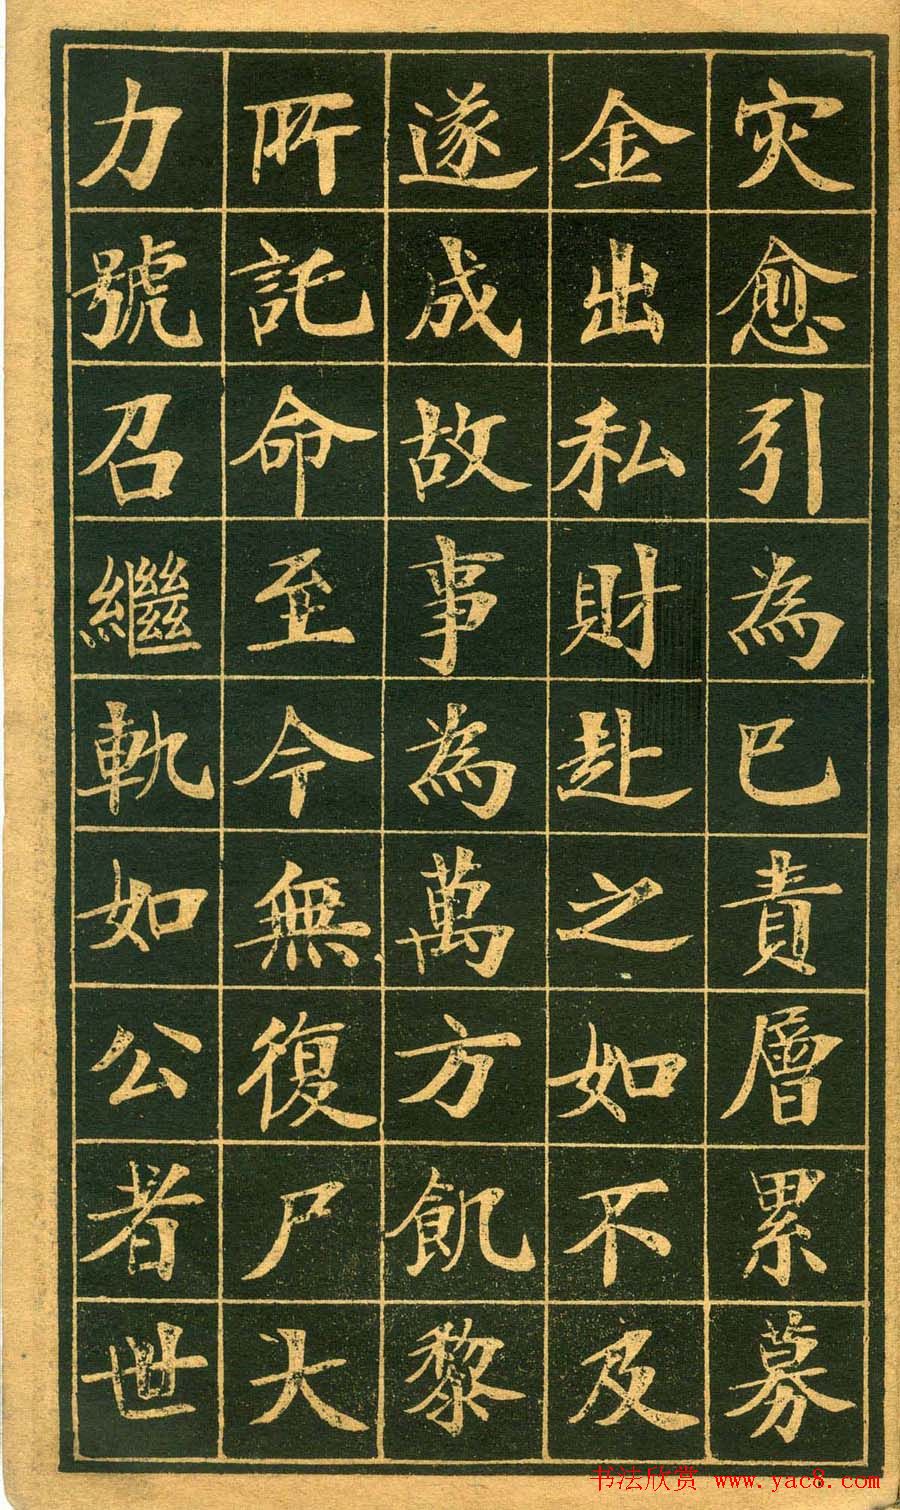 灾愈引為己責層累募
金出私財赴之如不及
遂成故事為萬方飢黎
所託命至今無復尸大
力號召繼軌如公者世
书法欣赏 www.yac8.com